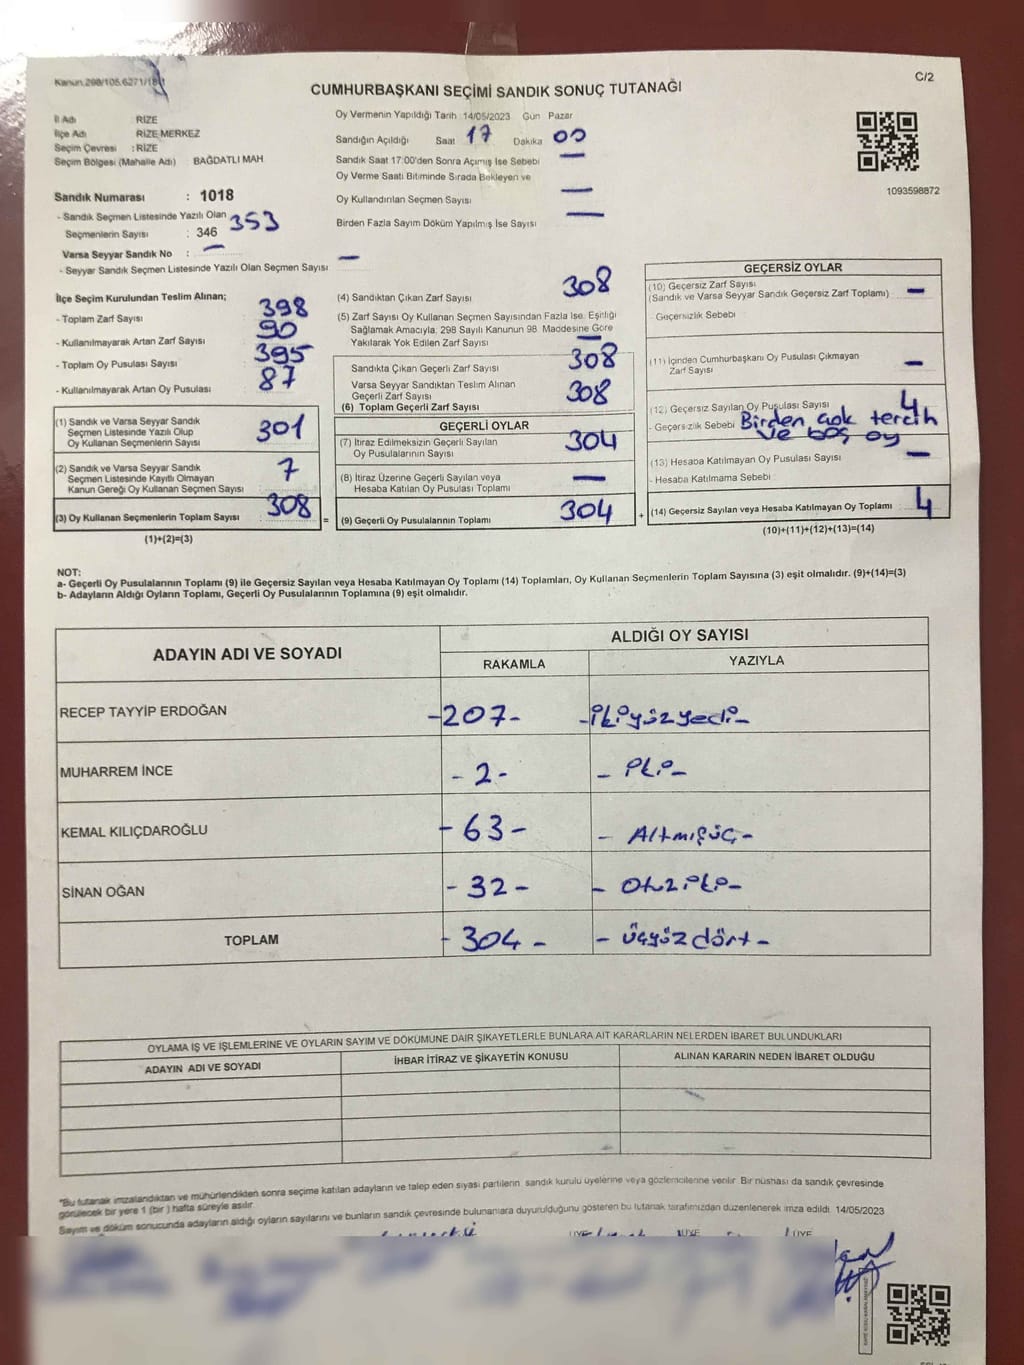 Kanun 298/105,6271/18
C/2
CUMHURBAŞKANI SEÇİMİ SANDIK SONUÇ TUTANAĞI
İl Adı RİZE
İlçe Adı RİZE MERKEZ
Seçim Çevresi : RİZE
Seçim Bölgesi (Mahalle Adı) BAĞDATLI MAH
Sandık Numarası : 1018
- Sandık Seçmen Listesinde Yazılı Olan 353
Seçmenlerin Sayısı : 346
Varsa Seyyar Sandık No : —
- Seyyar Sandık Seçmen Listesinde Yazılı Olan Seçmen Sayısı —
Oy Vermenin Yapıldığı Tarih 14/05/2023 Gün Pazar
Sandığın Açıldığı Saat 17 Dakika 00
Sandık Saat 17:00'den Sonra Açımış İse Sebebi —
Oy Verme Saati Bitiminde Sırada Bekleyen ve
Oy Kullandırılan Seçmen Sayısı —
Birden Fazla Sayım Döküm Yapılmış İse Sayısı —
1093598872
İlçe Seçim Kurulundan Teslim Alınan;
- Toplam Zarf Sayısı 398
- Kullanılmayarak Artan Zarf Sayısı 90
- Toplam Oy Pusulası Sayısı 395
- Kullanılmayarak Artan Oy Pusulası 87
(1) Sandık ve Varsa Seyyar Sandık
Seçmen Listesinde Yazılı Olup
Oy Kullanan Seçmenlerin Sayısı 301
(2) Sandık ve Varsa Seyyar Sandık
Seçmen Listesinde Kayıtlı Olmayan
Kanun Gereği Oy Kullanan Seçmen Sayısı 7
(3) Oy Kullanan Seçmenlerin Toplam Sayısı 308
(1)+(2)=(3)
(4) Sandıktan Çıkan Zarf Sayısı 308
(5) Zarf Sayısı Oy Kullanan Seçmen Sayısından Fazla İse, Eşitliği
Sağlamak Amacıyla, 298 Sayılı Kanunun 98. Maddesine Göre
Yakılarak Yok Edilen Zarf Sayısı —
Sandıkta Çıkan Geçerli Zarf Sayısı 308
Varsa Seyyar Sandıktan Teslim Alınan
Geçerli Zarf Sayısı 308
(6) Toplam Geçerli Zarf Sayısı
GEÇERLİ OYLAR
(7) İtiraz Edilmeksizin Geçerli Sayılan
Oy Pusulalarının Sayısı 304
(8) İtiraz Üzerine Geçerli Sayılan veya
Hesaba Katılan Oy Pusulası Toplamı —
= (9) Geçerli Oy Pusulalarının Toplamı 304 +
GEÇERSİZ OYLAR
(10) Geçersiz Zarf Sayısı
(Sandık ve Varsa Seyyar Sandık Geçersiz Zarf Toplamı) —
- Geçersizlik Sebebi
(11) İçinden Cumhurbaşkanı Oy Pusulası Çıkmayan
Zarf Sayısı —
(12) Geçersiz Sayılan Oy Pusulası Sayısı 4
- Geçersizlik Sebebi Birden çok tercih
ve boş oy
(13) Hesaba Katılmayan Oy Pusulası Sayısı —
- Hesaba Katılmama Sebebi
(14) Geçersiz Sayılan veya Hesaba Katılmayan Oy Toplamı 4
(10)+(11)+(12)+(13)=(14)
NOT:
a- Geçerli Oy Pusulalarının Toplamı (9) ile Geçersiz Sayılan veya Hesaba Katılmayan Oy Toplamı (14) Toplamları, Oy Kullanan Seçmenlerin Toplam Sayısına (3) eşit olmalıdır. (9)+(14)=(3)
b- Adayların Aldığı Oyların Toplamı, Geçerli Oy Pusulalarının Toplamına (9) eşit olmalıdır.
ADAYIN ADI VE SOYADI
ALDIĞI OY SAYISI
RAKAMLA YAZIYLA
RECEP TAYYİP ERDOĞAN -207- -ikiyüzyedi-
MUHARREM İNCE -2- -iki-
KEMAL KILIÇDAROĞLU -63- -Altmışüç-
SİNAN OĞAN -32- -Otuziki-
TOPLAM -304- -üçyüzdört-
OYLAMA İŞ VE İŞLEMLERİNE VE OYLARIN SAYIM VE DÖKÜMÜNE DAİR ŞİKAYETLERLE BUNLARA AİT KARARLARIN NELERDEN İBARET BULUNDUKLARI
ADAYIN ADI VE SOYADI İHBAR İTİRAZ VE ŞİKAYETİN KONUSU ALINAN KARARIN NEDEN İBARET OLDUĞU
*Bu tutanak imzalandıktan ve mühürlendikten sonra seçime katılan adayların ve talep eden siyasi partilerin, sandık kurulu üyelerine veya gözlemcilerine verilir. Bir nüshası da sandık çevresinde
görülecek bir yere 1 (bir) hafta süreyle asılır.
Sayım ve döküm sonucunda adayların aldığı oyların sayılarını ve bunların sandık çevresinde bulunanlara duyurulduğunu gösteren bu tutanak tarafımızdan düzenlenerek imza edildi. 14/05/2023
ÜYE ÜYE ÜYE